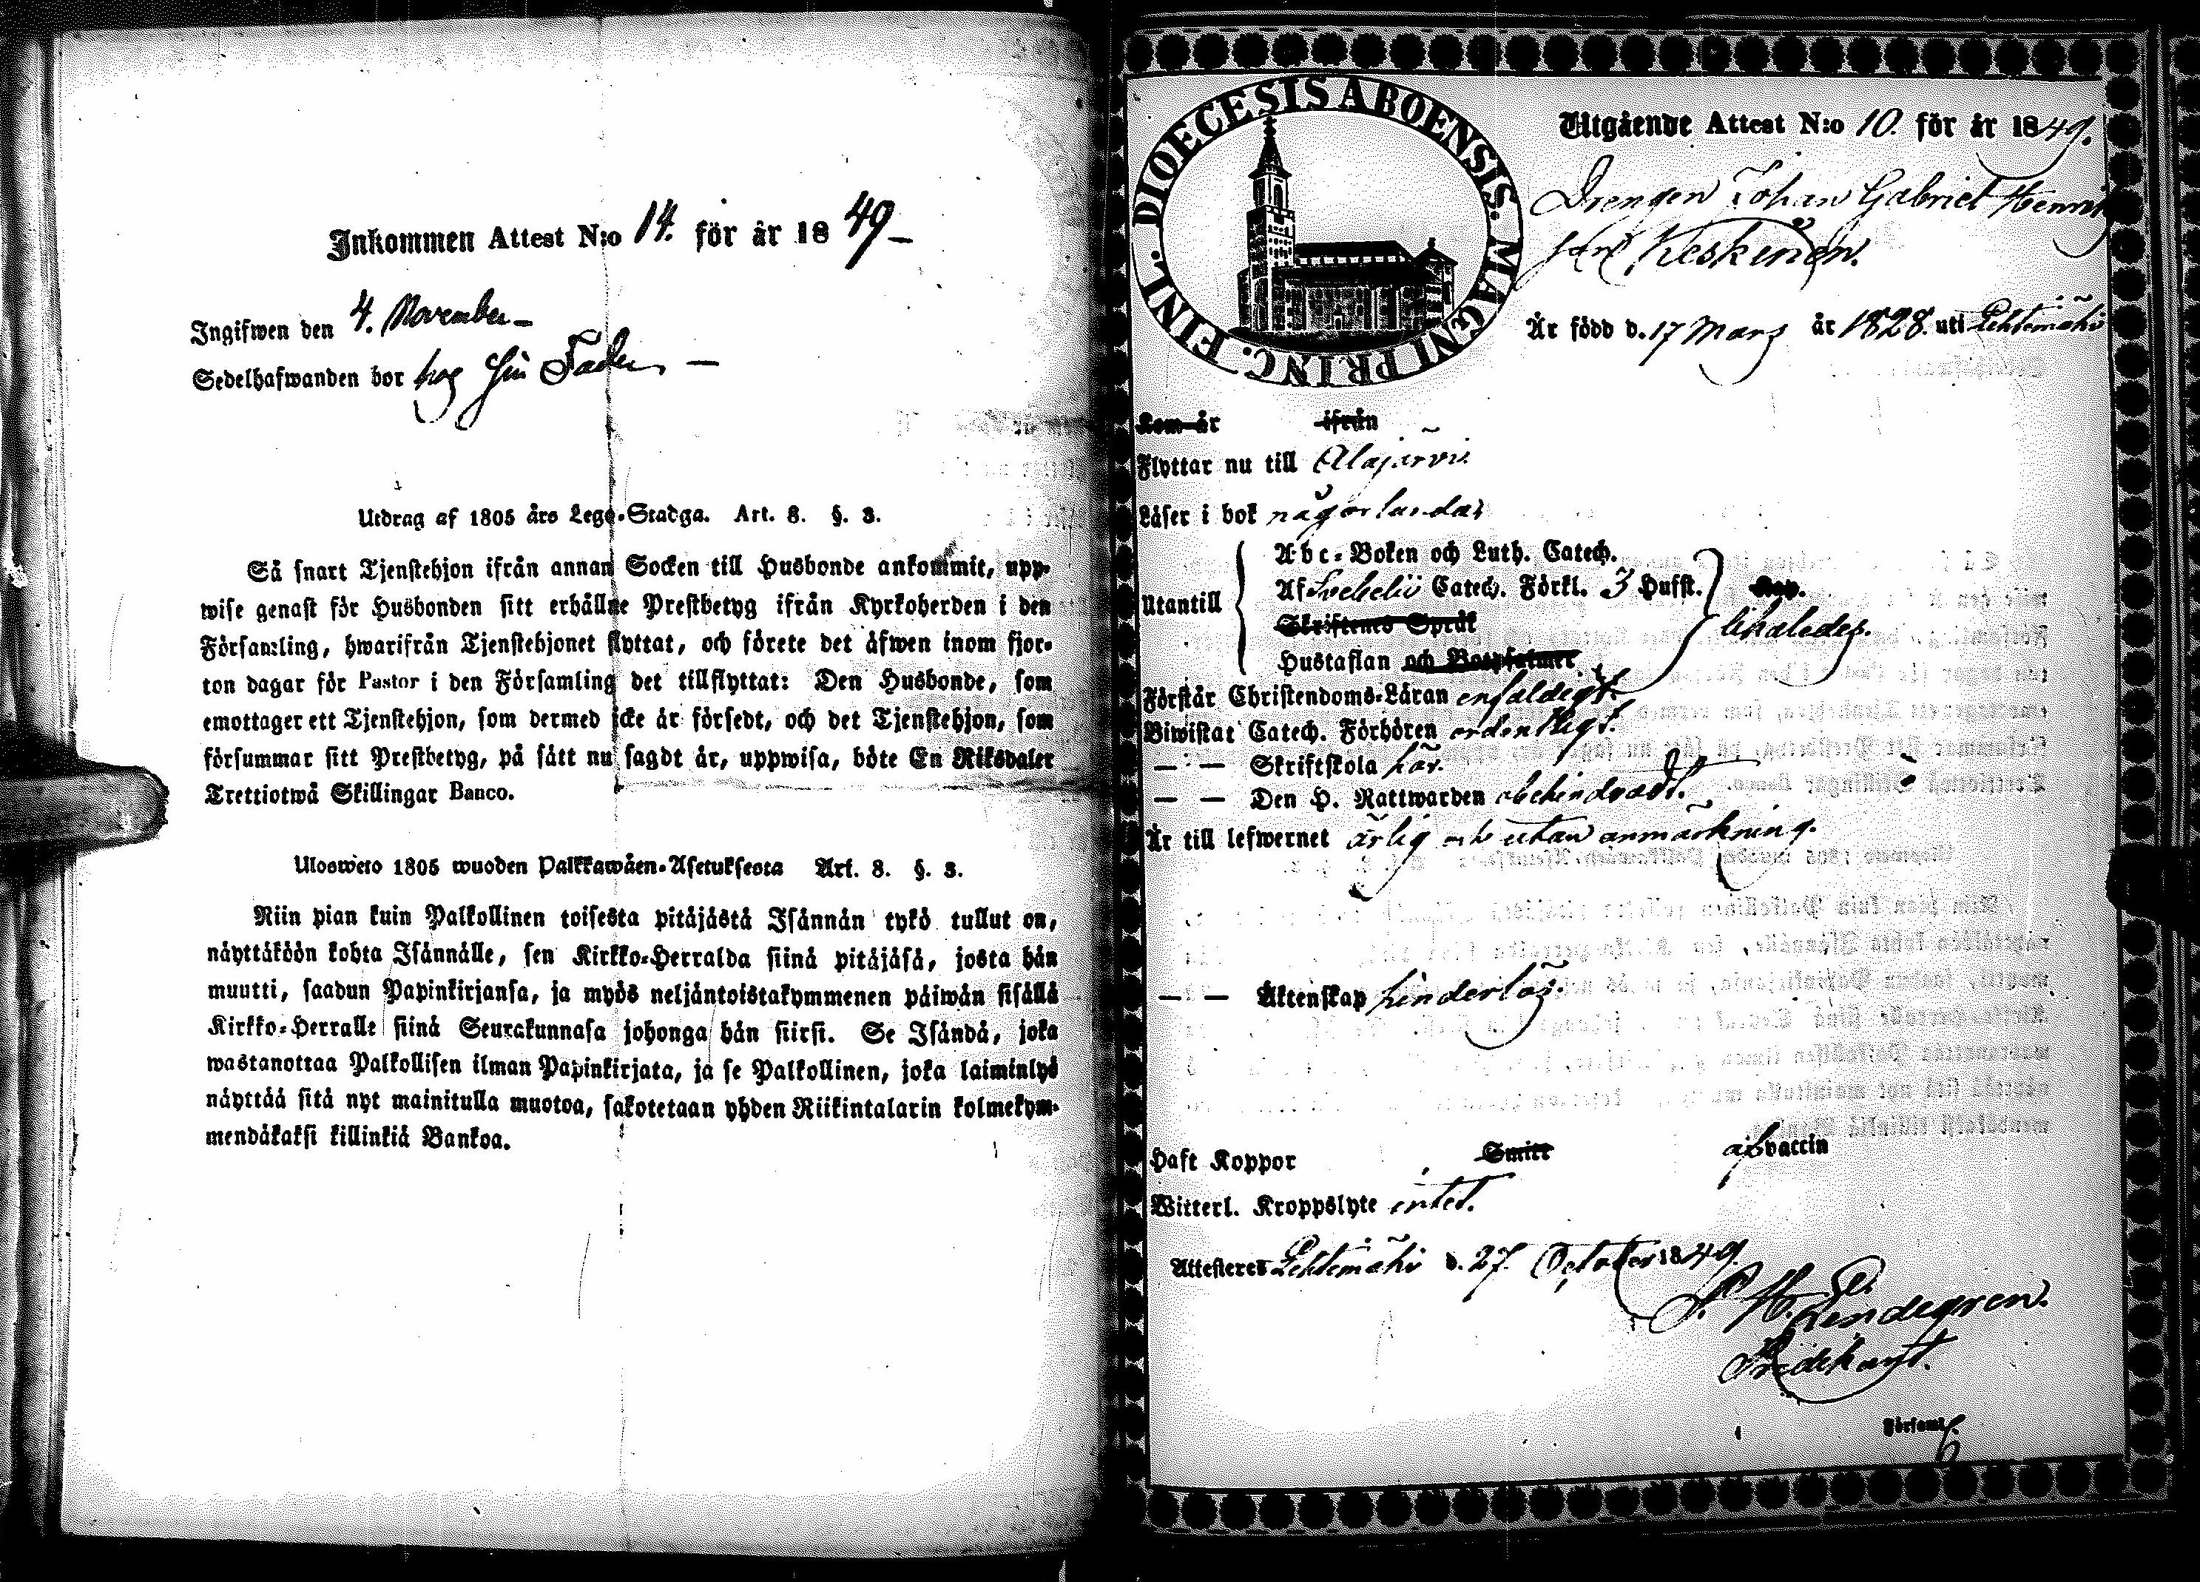 Inkommen Attest N:o 14. för år 1849 –
Ingifwen den 4. November –
Sedelhafwanden bor hos sin Fader, –
Utdrag af 1805 års Lego-Stadga. Art. 8. §. 3.
Så snart Tjenstehjon ifrån annan Socken till Husbonde ankommit, upp-
wise genast för Husbonden sitt erhållne Prestbetyg ifrån Kyrkoherden i den
Församling, hwarifrån Tjenstehjonet flyttat, och förete det äfwen inom fjor-
ton dagar för Pastor i den Församling det tillflyttat: Den Husbonde, som
emottager ett Tjenstehjon, som dermed icke är försedt, och det Tjenstehjon, som
försummar sitt Prestbetyg, på sätt nu sagdt är, uppwisa, böte En Riksdaler
Trettiotwå Skillingar Banco.
Ulosweto 1805 wuoden Palkkawäen-Asetuksesta Art. 8. §. 3.
Niin pian kuin Palkollinen toisesta pitäjästä Isännän tykö tullut on,
näyttäköön kohta Isännälle, sen Kirkko-Herralda siinä pitäjäsä, josta hän
muutti, saadun Papinkirjansa, ja myös neljäntoistakymmenen päiwän sisällä
Kirkko-Herralle siinä Seurakunnasa johonga hän siirsi. Se Isändä, joka
wastanottaa Palkollisen ilman Papinkirjata, ja se Palkollinen, joka laiminlyö
näyttää sitä nyt mainitulla muotoa, sakotetaan yhden Riikintalarin kolmekym-
mendäkaksi killinkiä Bankoa.
DIOECESIS ABOENSIS. MAGNI PRINC. FINL.
Utgående Attest N:o 10. för år 1849.
Drengen Johan Gabriel Henrik
son Keskinen.
Är född d. 17 Mars år 1828. uti Lehtimäki
Kom år ifrån
Flyttar nu till Alajärvi.
Läser i bok någorlunda,
Utantill
Abc-Boken och Luth. Catech.
Af Svebelii Catech. Förkl. 3 Hufst.
Skriftenes Språk
Hustaflan och Botpsalmer
Kap.
likaledes.
Förstår Christendoms-Läran enfaldigt.
Biwistat Catech. Förhören ordentligt.
— — Skriftskola här.
— — Den H. Nattwarden obehindradt.
Är till lefwernet ärlig och utan anmärkning.
— — Äktenskap hinderlös.
Haft Koppor Smitt af vaccin
Witterl. Kroppslyte intet.
Attesteres Lehtimäki d. 27. October 1849.
Lindegren.
Predikant.
Församl.